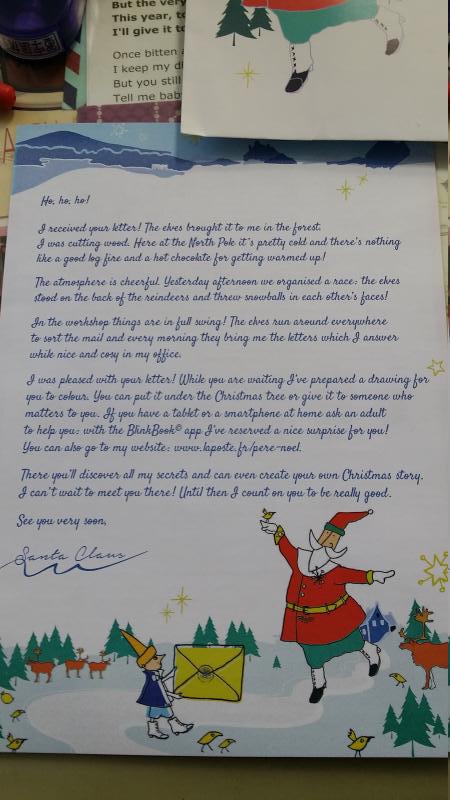 But the very
This year, to
I'll give it to
Once bitten a
I keep my di
But you still
Tell me bab
Ho, ho, ho!
I received your letter! The elves brought it to me in the forest.
I was cutting wood. Here at the North Pole it's pretty cold and there's nothing
like a good log fire and a hot chocolate for getting warmed up!
The atmosphere is cheerful. Yesterday afternoon we organised a race: the elves
stood on the back of the reindeers and threw snowballs in each other's faces!
In the workshop things are in full swing! The elves run around everywhere
to sort the mail and every morning they bring me the letters which I answer
while nice and cosy in my office.
I was pleased with your letter! While you are waiting I've prepared a drawing for
you to colour. You can put it under the Christmas tree or give it to someone who
matters to you. If you have a tablet or a smartphone at home ask an adult
to help you: with the BlinkBook© app I've reserved a nice surprise for you!
You can also go to my website: www.laposte.fr/pere-noel.
There you'll discover all my secrets and can even create your own Christmas story.
I can't wait to meet you there! Until then I count on you to be really good.
See you very soon,
Santa Claus